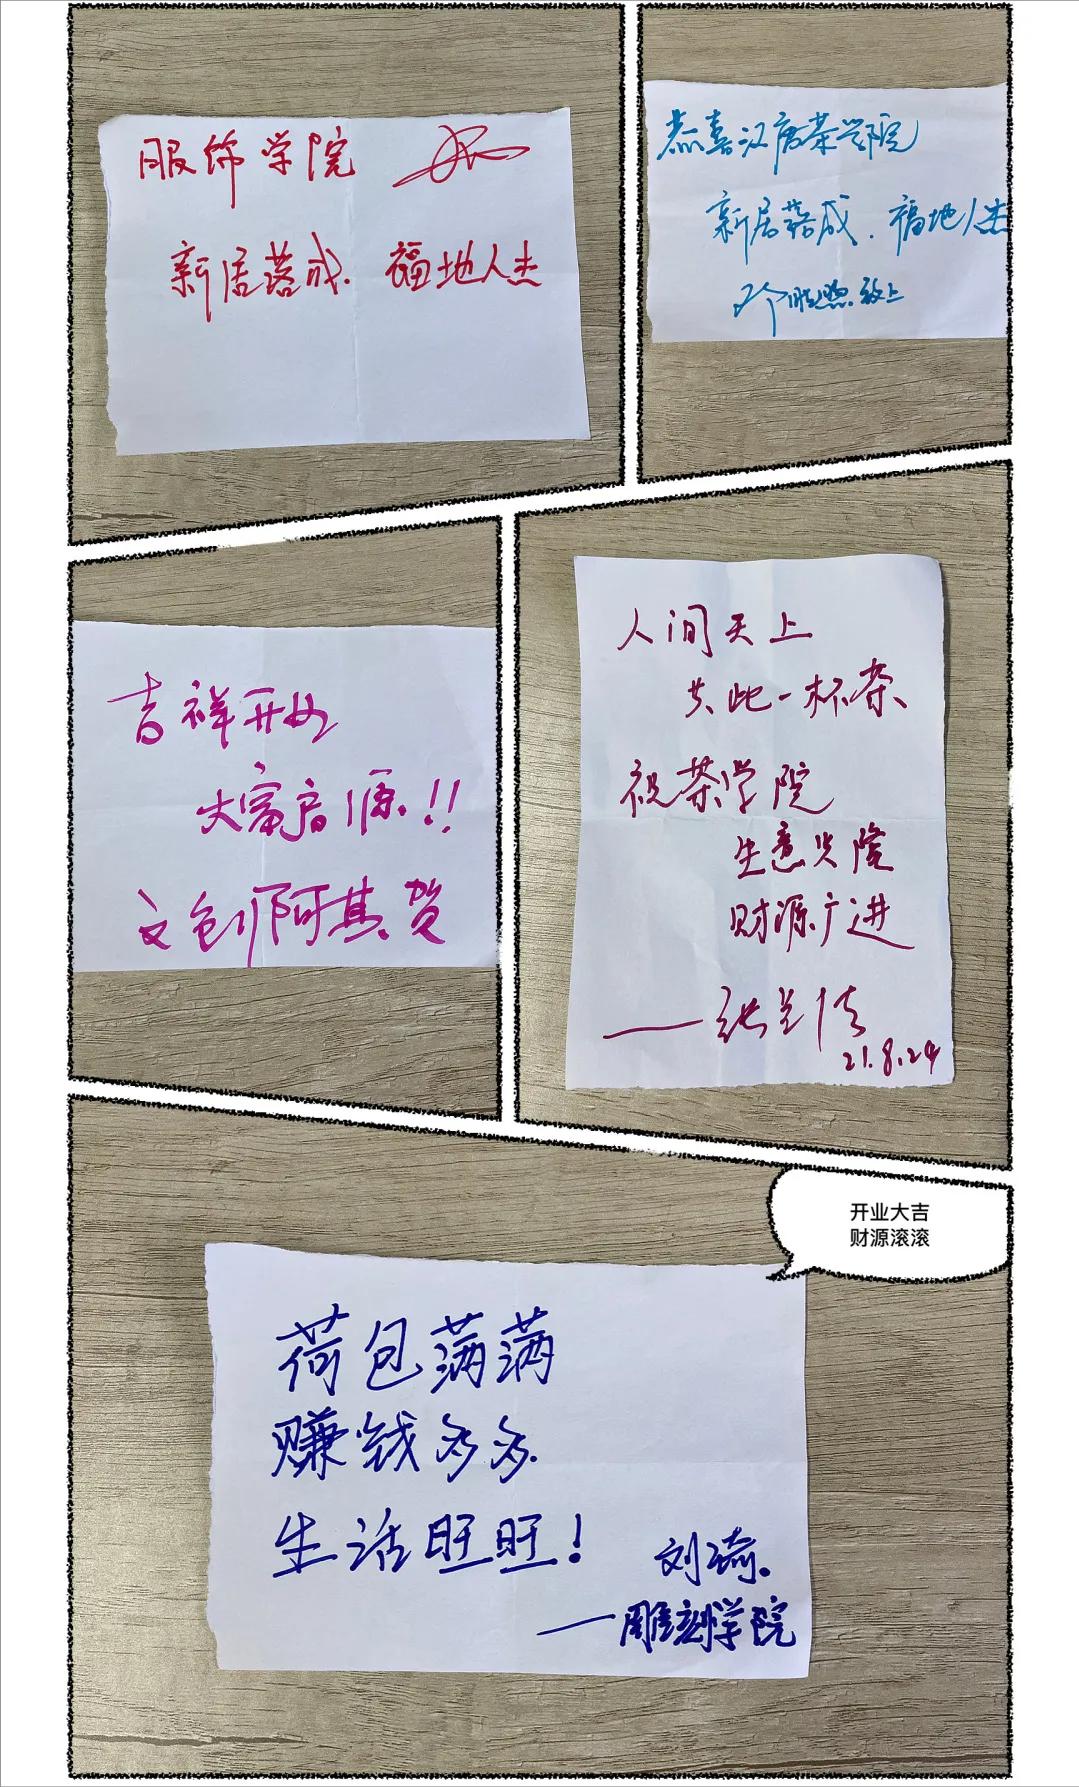 服饰学院
新居落成. 福地人杰
恭喜汉唐茶学院
新居落成. 福地人杰
敬上
吉祥开业
大富启源!!
文创 阿其 贺
人间天上
共此一杯茶
祝茶学院
生意兴隆
财源广进
21.8.24
开业大吉
财源滚滚
荷包满满
赚钱多多.
生活旺旺!
刘琦.
——雕刻学院